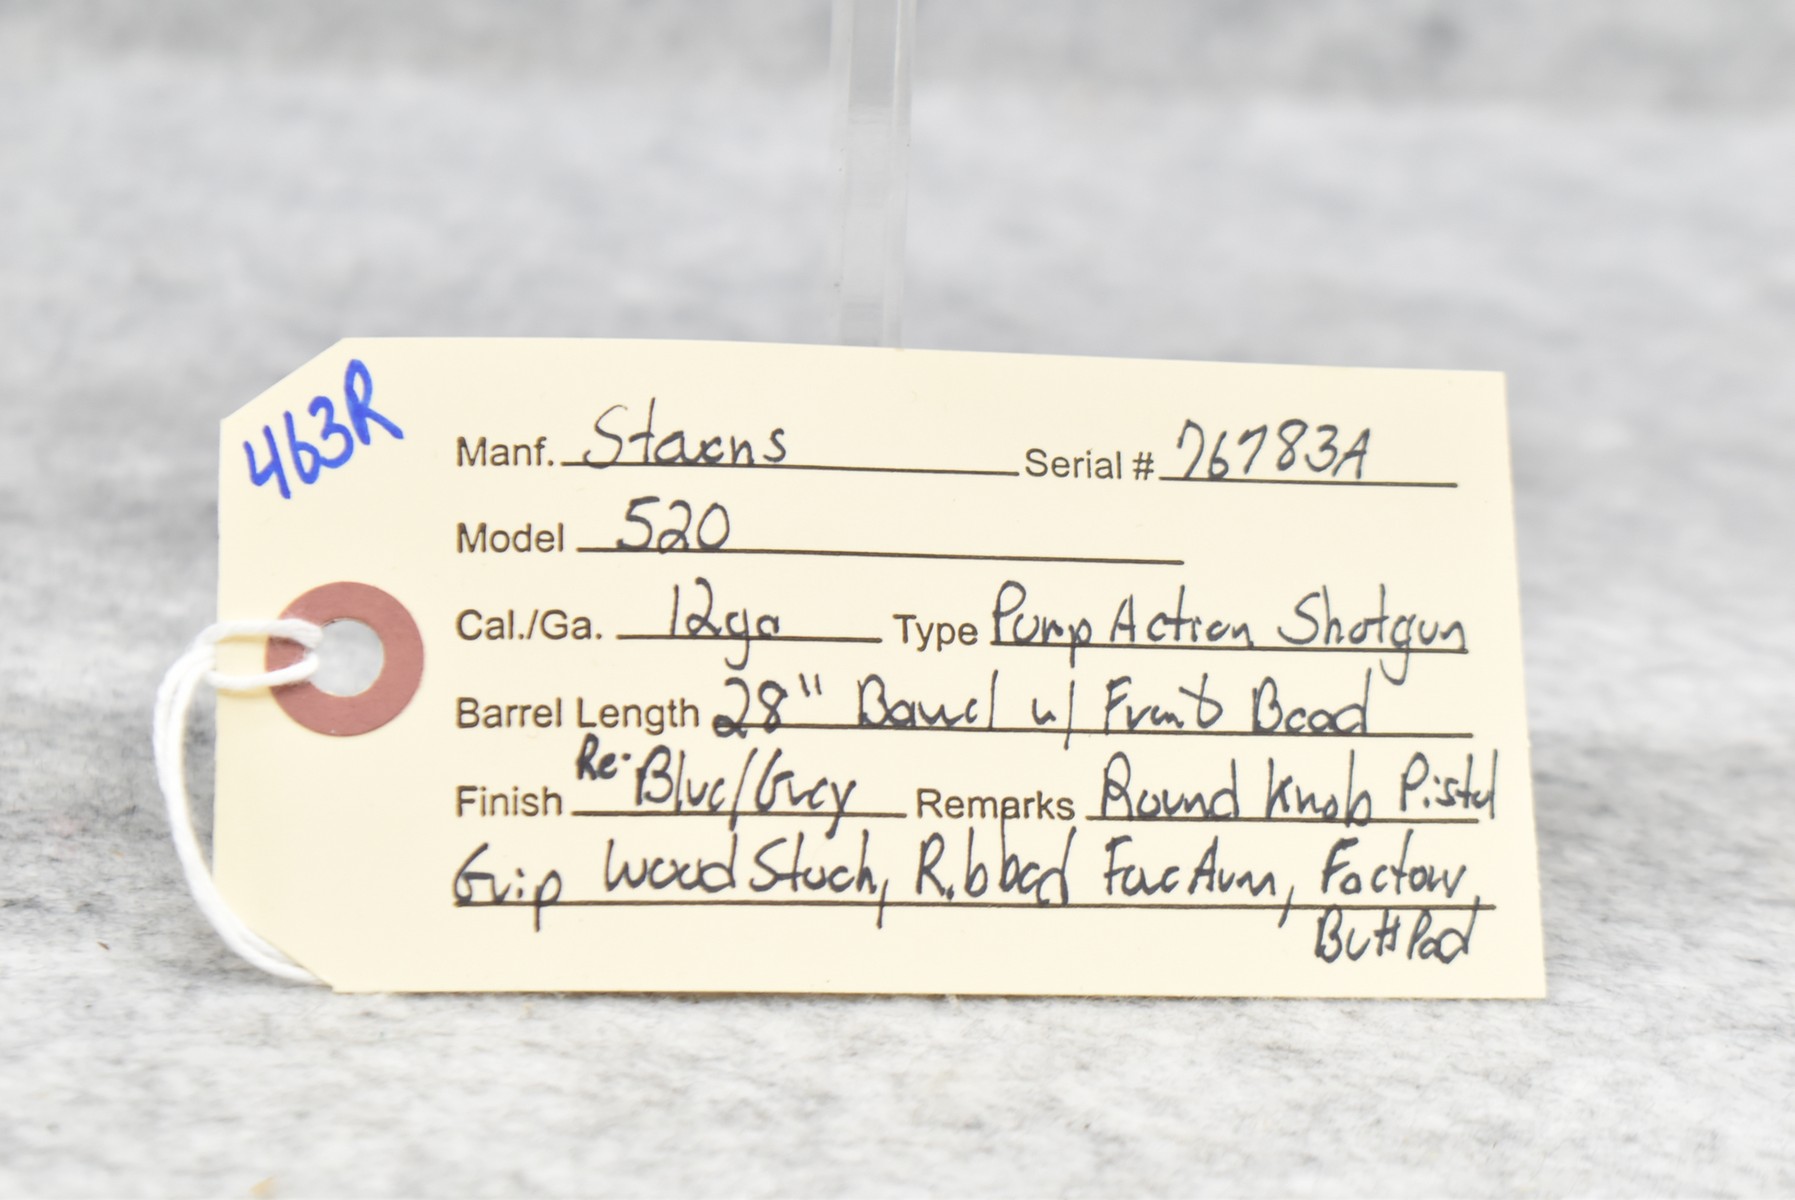 463R
Manf. Staens Serial # 76783A
Model 520
Cal./Ga. 12ga Type Pump Action Shotgun
Barrel Length 28" Barrel w/ Front Bead
Finish Re-Blue/Grey Remarks Round Knob Pistol
Grip Wood Stock, Ribbed ForArm, Factory
Butt Pad